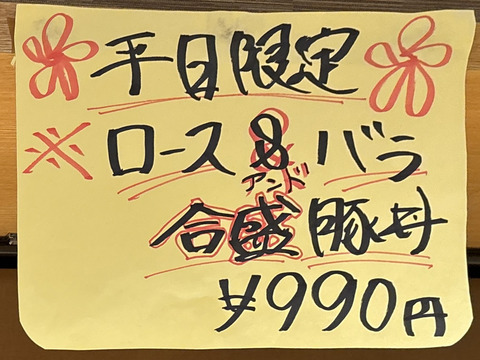 平日限定
※ロース&バラ
アンド
合盛豚丼
¥990円